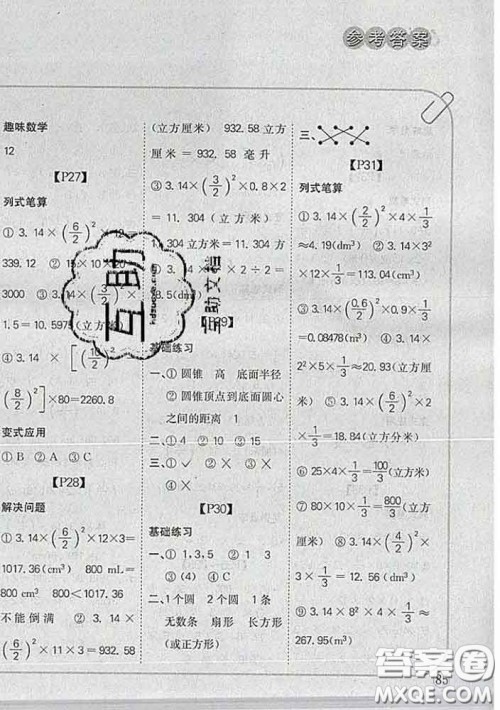 参考答案
趣味数学
12
【P27】
列式笔算
① 3.14×(6/2)²×
339.12 ② 15×10×20
3000 ③ 3.14×(3/2)²×
1.5=10.5975(立方
④ 3.14×[(10/2)²
(8/2)²]×80=2260.8
变式应用
①B ②A ③C
【P28】
解决问题
① 3.14×(6/2)²×12×3=
1017.36(cm³) 800 mL=
800 cm³ 800<1017.36
不能倒满 ② 3.14×
(6/2)²×11×3=932.58
(立方厘米) 932.58立方
厘米=932.58毫升
③ 3.14×(3/2)²×0.8×2
=11.304(立方米)
11.304立方米=11.304方
×2÷2=
.5(dm³)
基础练习
一、①圆锥 高 底面半径
②圆锥顶点到底面圆心
之间的距离 1
二、①4 ②10 ③2 ④15
三、①✓ ②× ③×
④×
【P30】
基础练习
一、①1,3,5 ②2
③(4) ④C
二、1个圆 2个圆 1条
无数条 扇形 长方形
(或正方形)
三、
【P31】
列式笔算
① 3.14×(2/2)²×4×1/3
≈4.19(dm³) ② 3.14×3²
×12×1/3=113.04(cm³)
③ 3.14×(0.6/2)²×0.9×1/3
=0.08478(m³) ④ 3.14×
2²×5×1/3≈20.93(立方
厘米) ⑤ 3.14×(6/2)²×2
×1/3=18.84(立方分米)
⑥ 25×4×1/3=100/3(立方
厘米) ⑦ 80×10×1/3=800/3(立方
厘米) ⑧ 3.14×(4/2)²×
3×1/3=12.56(dm³)
⑨ 3.14×4²×16×1/3≈
267.95(m³)
互助
互助文档
答案圈
MXQE.COM
85